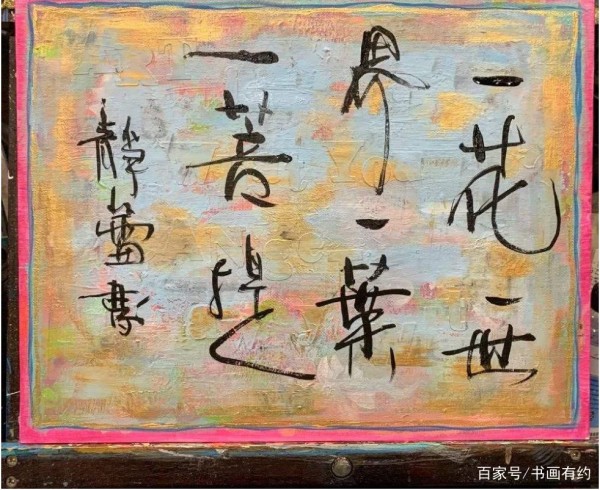 一花一世
界一葉
一菩提
靜蕾書
百家号/书画有约